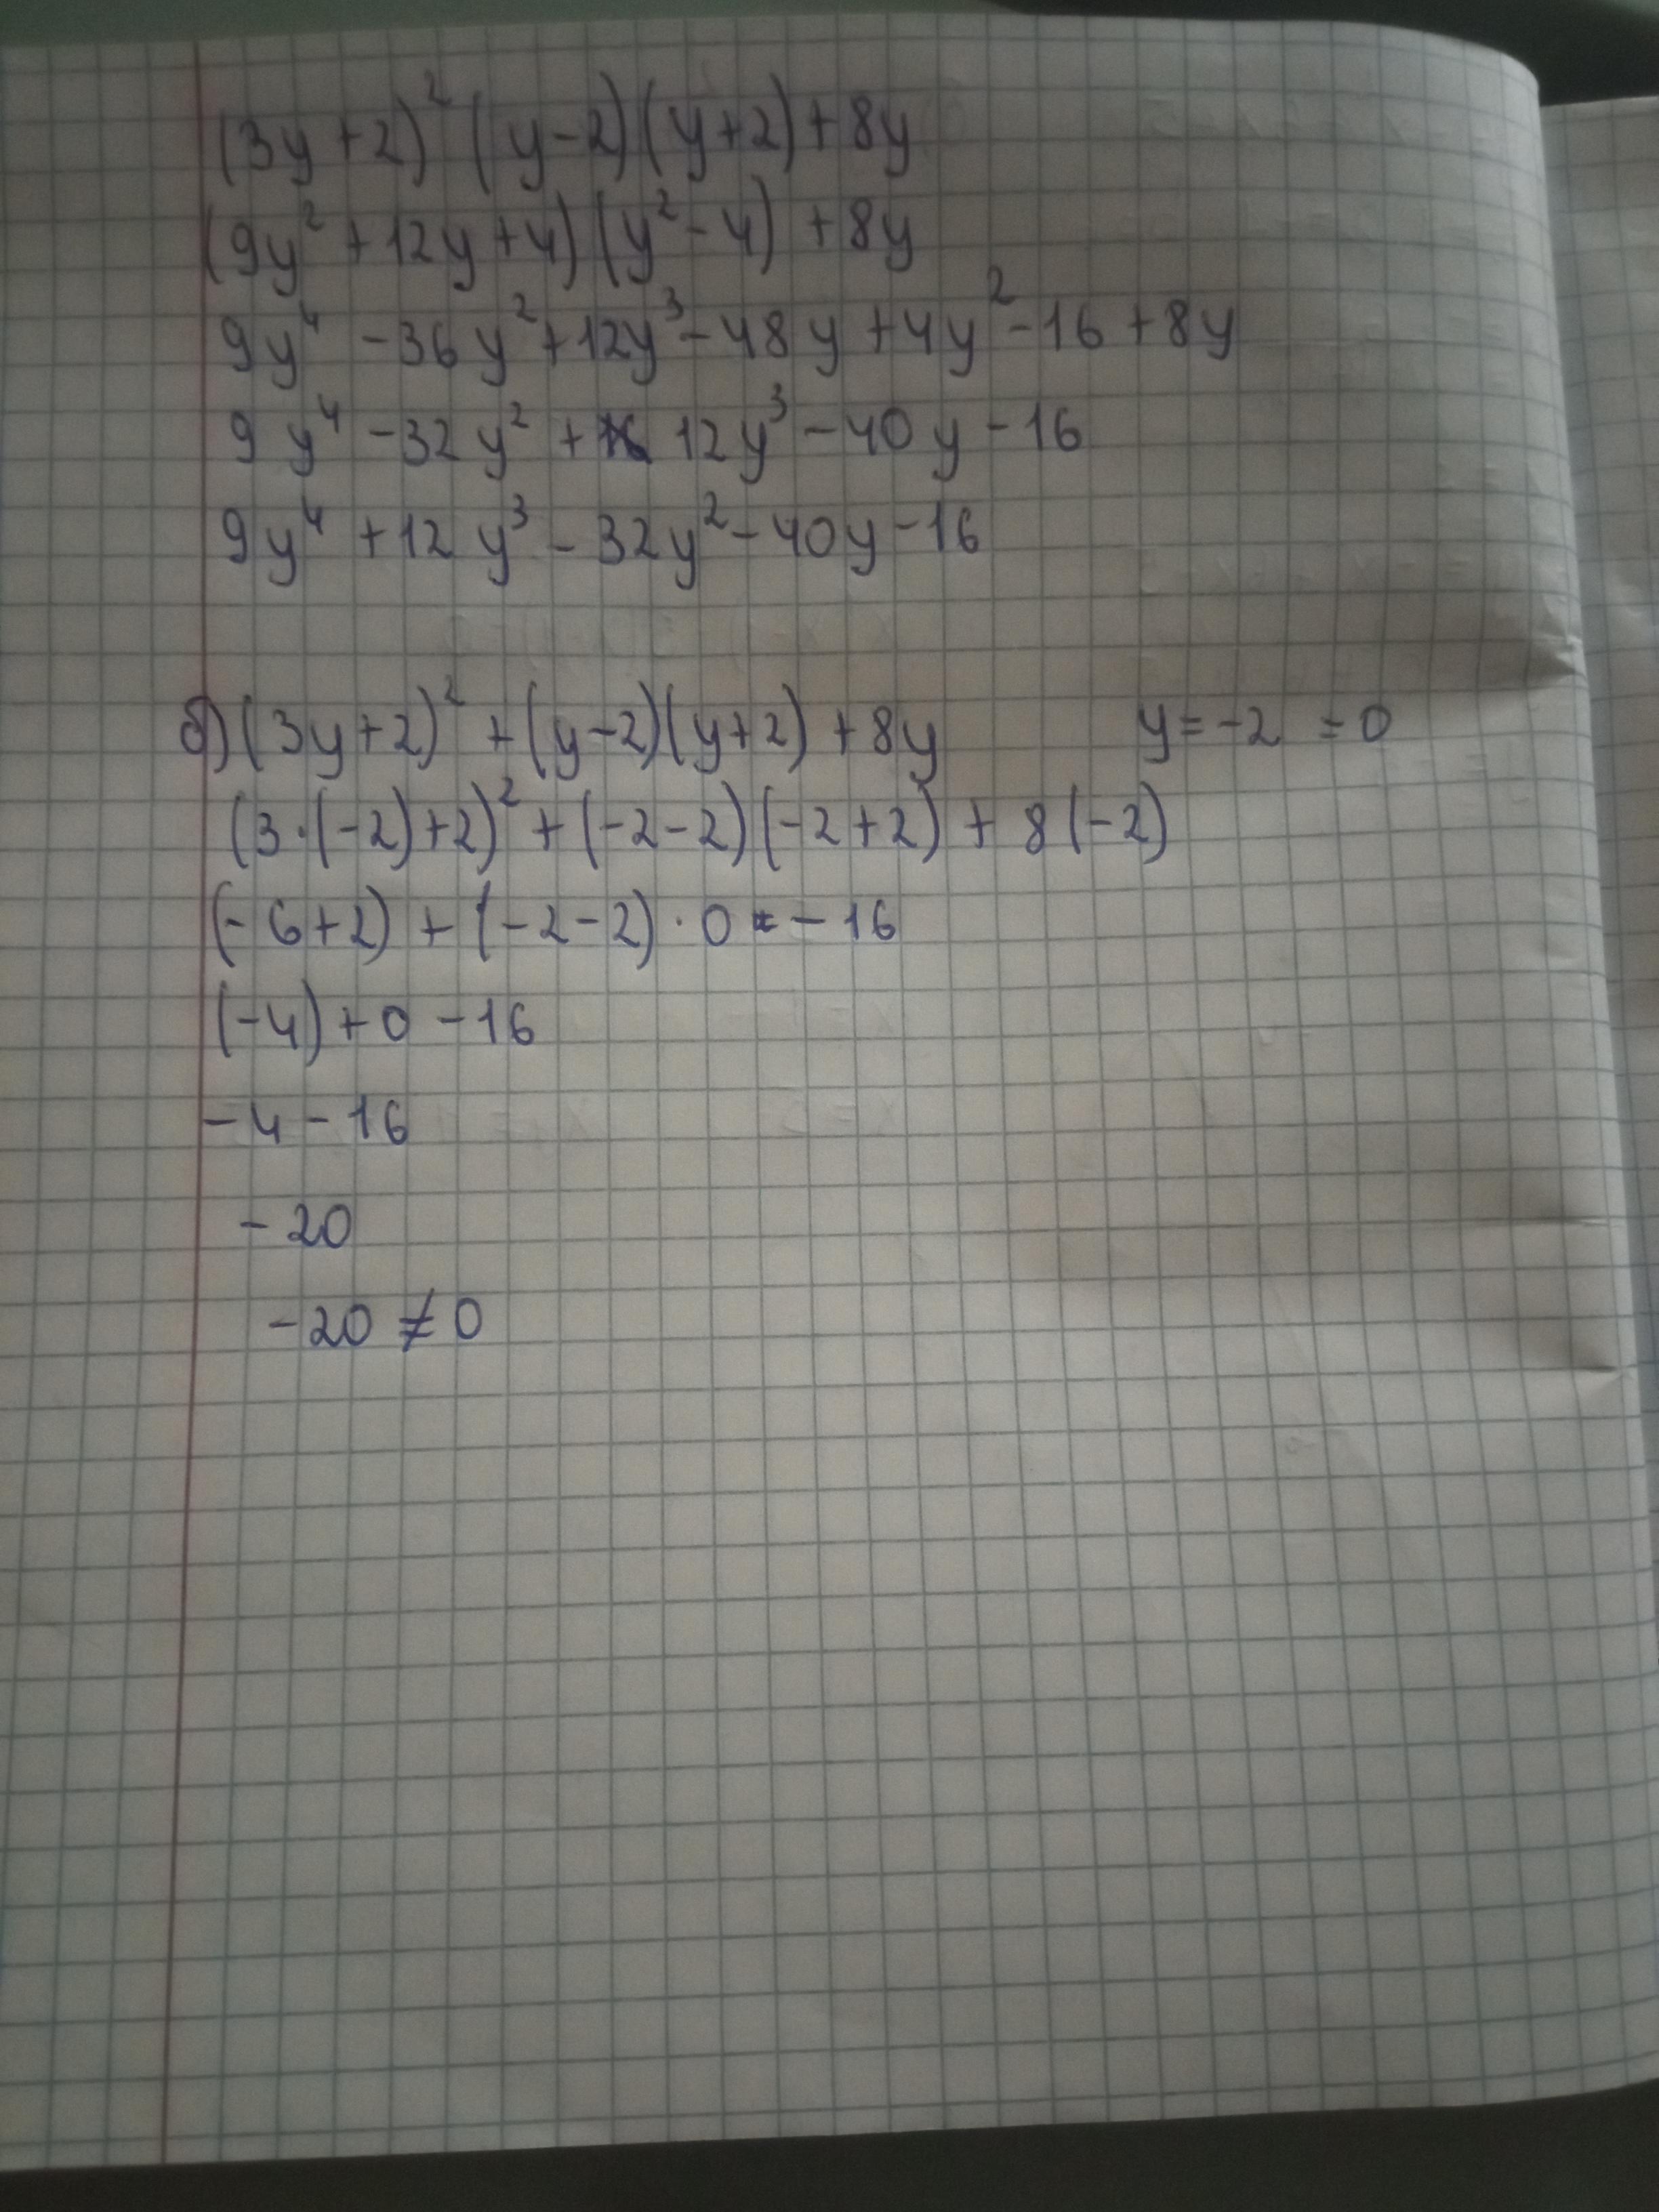 (3y+2)² (y-2)(y+2)+8y
(9y²+12y+4)(y²-4)+8y
9y⁴-36y²+12y³-48y+4y²-16+8y
9y⁴-32y²+12y³-40y-16
9y⁴+12y³-32y²-40y-16
б)(3y+2)²+(y-2)(y+2)+8y y=-2 =0
(3·(-2)+2)²+(-2-2)(-2+2)+8(-2)
(-6+2)+(-2-2)·0-16
(-4)+0-16
-4-16
-20
-20≠0